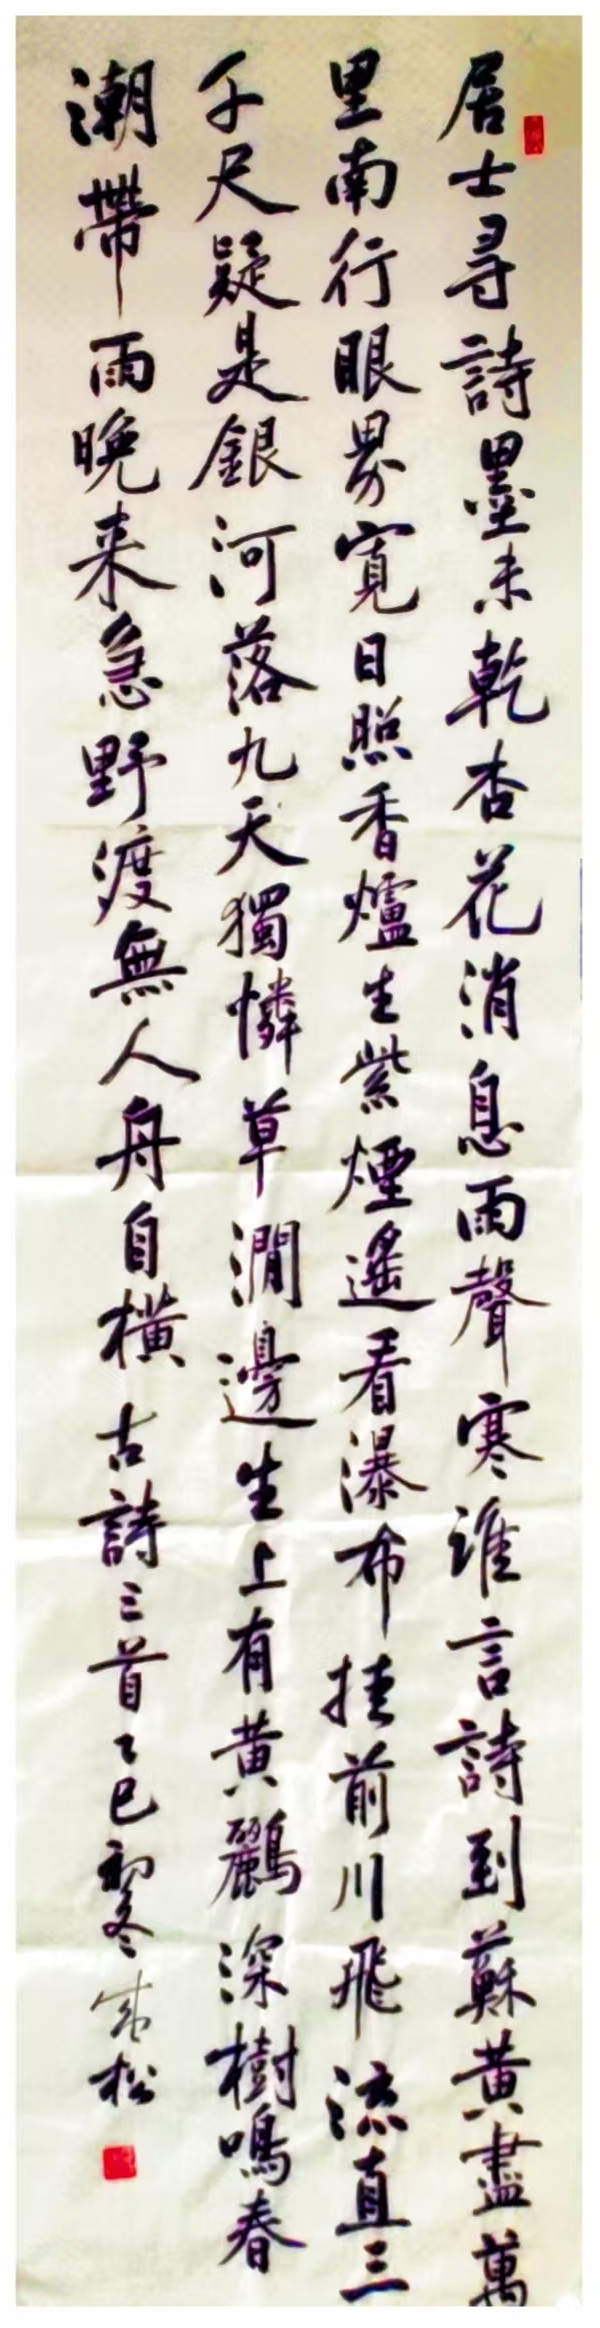 居士尋詩墨未乾杏花消息雨聲寒誰言詩到蘇黃盡萬
里南行眼界寬日照香爐生紫煙遙看瀑布挂前川飛流直三
千尺疑是銀河落九天獨憐草澗邊生上有黄鸝深樹鳴春
潮帶雨晚来急野渡無人舟自橫古詩三首乙巳初冬松